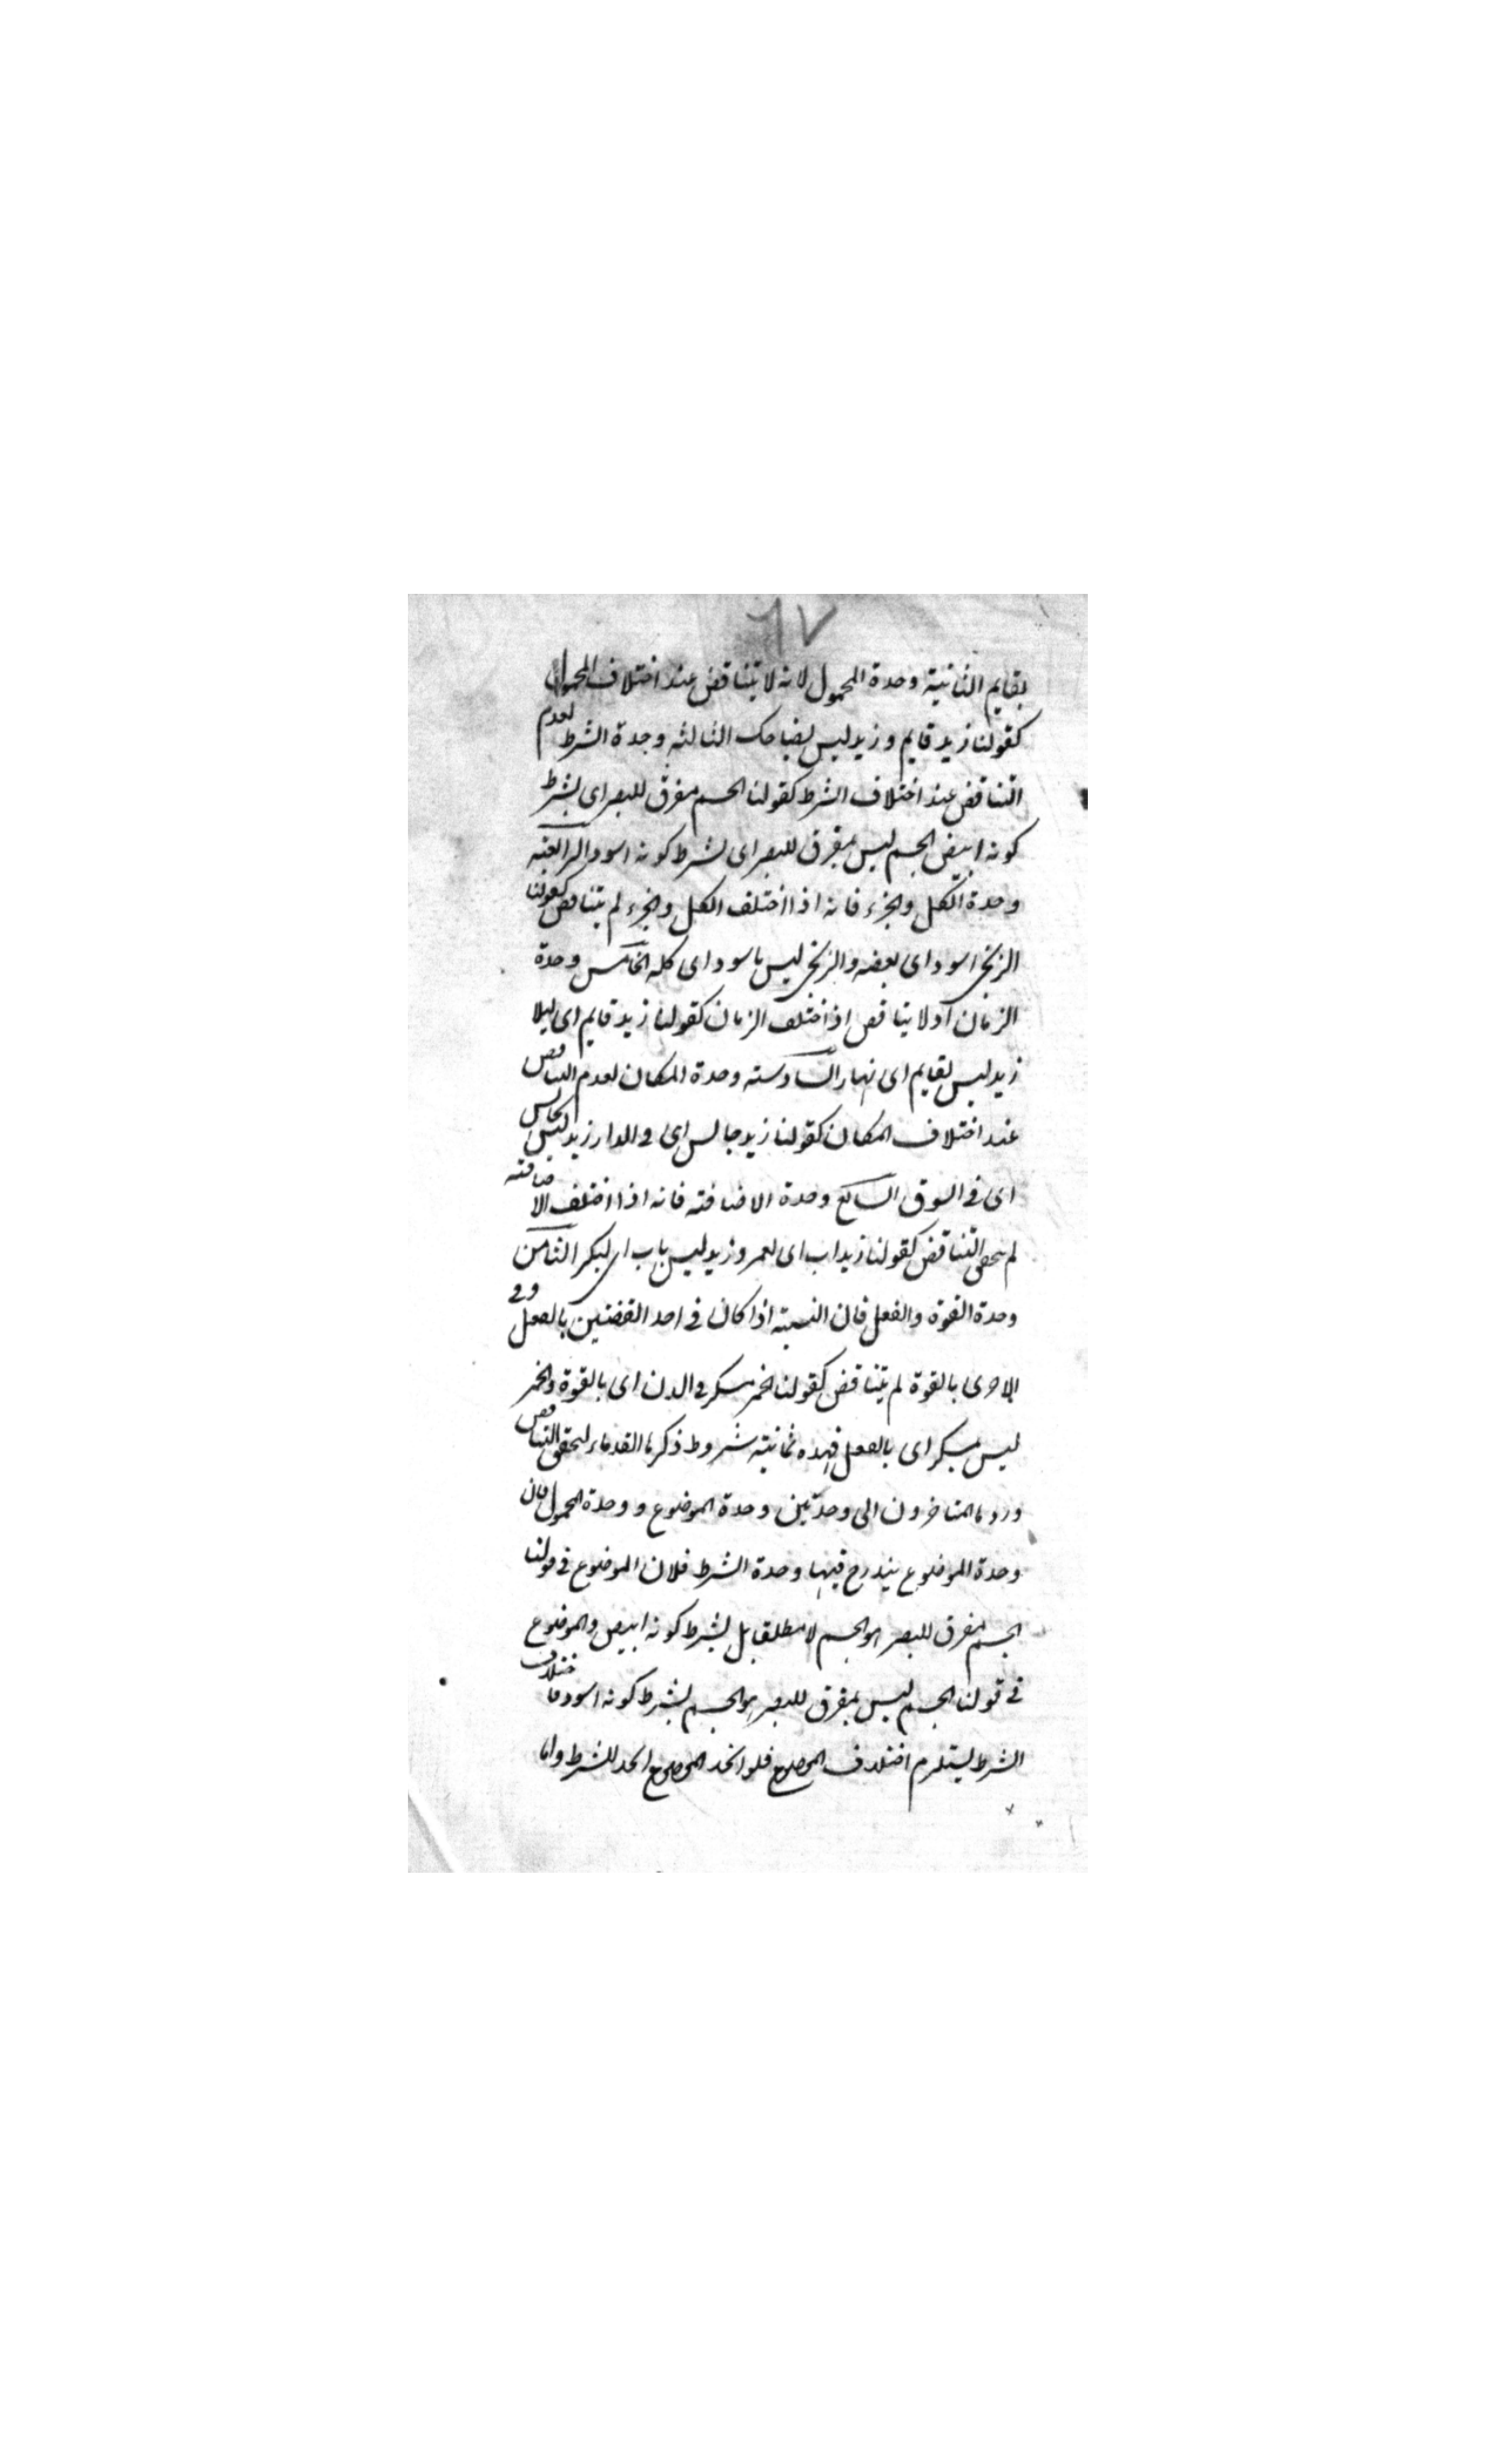 ٦٧
بقايم الثانية وحدة المحمول لانه لا يتناقض عند اختلاف المحمول
كقولنا زيد قايم و زيد ليس بضاحك الثالثه وحدة الشرط لعدم
التناقض عند اختلاف الشرط كقولنا الجسم مفرق للبصر اى بشرط
كونه ابيض الجسم ليس بمفرق للبصر اى بشرط كونه اسود الرابعة
وحدة الكل والجزء فانه اذا اختلف الكل والجزء لم يتناقض كقولنا
الزنجى اسود اى بعضه والزنجى ليس باسود اى كله الخامس وحدة
الزمان اذ لا يتناقض اذ اختلف الزمان كقولنا زيد قايم اى ليلا
زيد ليس بقايم اى نهارا السادسته وحدة المكان لعدم التناقض
عند اختلاف المكان كقولنا زيد جالس اى فى الدار زيد ليس بجالس
اى فى السوق السابع وحدة الاضافته فانه اذا اختلف الاضافته
لم يتحقق التناقض كقولنا زيد اب اى لعمر و زيد ليس باب اى لبكر الثامن
وحدة القوة والفعل فان النسبته اذا كان فى احد القضتين بالفعل وفى
الاخرى بالقوة لم يتناقض كقولنا الخمر مسكر فى الدن اى بالقوة والخمر
ليس بمسكر اى بالفعل فهذه ثمانيته شروط ذكرها القدماء لتحقق التناقض
وردها المتاخرون الى وحدتين وحدة الموضوع و وحدة المحمول فان
وحدة الموضوع يندرج فيها وحدة الشرط فلان الموضوع فى قولنا
الجسم مفرق للبصر هو الجسم لا مطلقا بل بشرط كونه ابيض والموضوع
فى قولنا الجسم ليس بمفرق للبصر هو الجسم بشرط كونه اسود فاختلاف
الشرط يستلزم اختلاف الموضوع فلو اتحد الموضوع اتحد الشرط واما